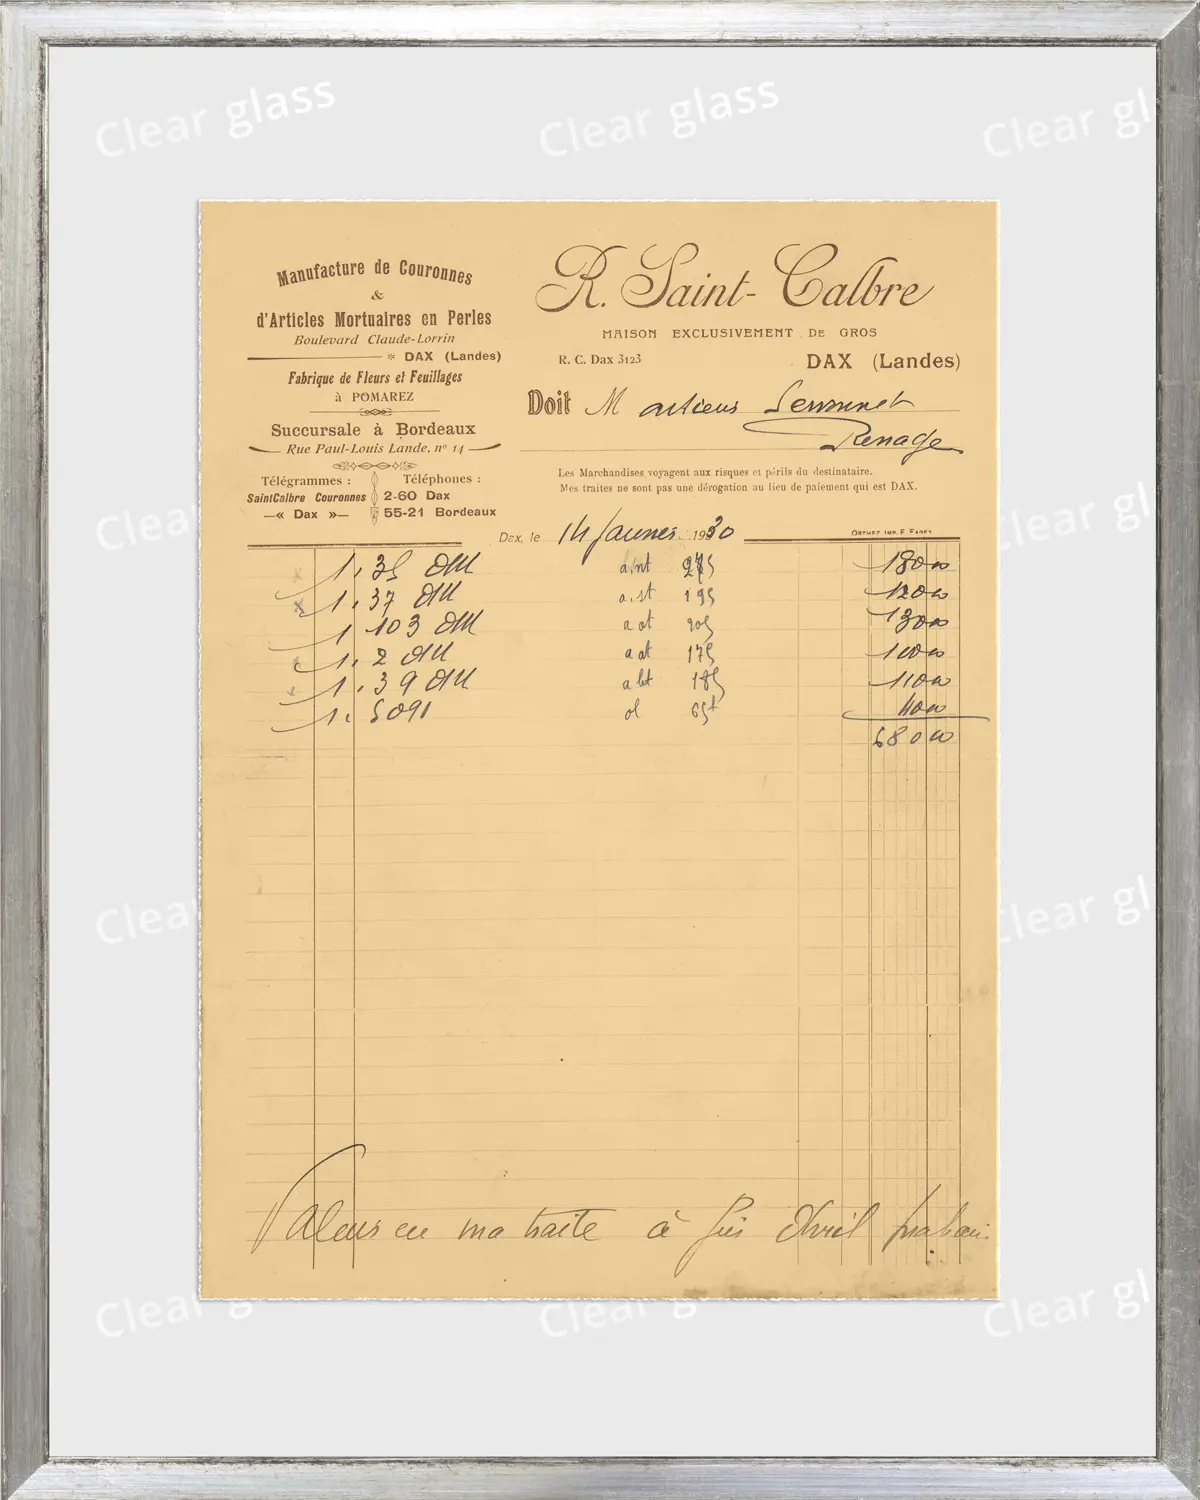 Clear glass Clear glass Clear gl
Manufacture de Couronnes
&
d'Articles Mortuaires en Perles
Boulevard Claude-Lorrin
* DAX (Landes)
Fabrique de Fleurs et Feuillages
à POMAREZ
Succursale à Bordeaux
Rue Paul-Louis Lande, nº 14
Télégrammes :
SaintCalbre Couronnes
—« Dax »—
Téléphones :
2-60 Dax
55-21 Bordeaux
R. Saint-Calbre
MAISON EXCLUSIVEMENT DE GROS
R. C. Dax 3123
DAX (Landes)
Doit M
Renage
Les Marchandises voyagent aux risques et périls du destinataire.
Mes traites ne sont pas une dérogation au lieu de paiement qui est DAX.
Dax, le 14 1930
1. 35 180 00
1. 37 195 120 00
1 103 205 130 00
1. 2 175 100 00
1. 39 185 110 00
1. 5091 65 40 00
680 00
Valeur en ma traite à fin Avril prochain
Clear Clear gl
Clear Clear gl
Clear g Clear g Clear gl